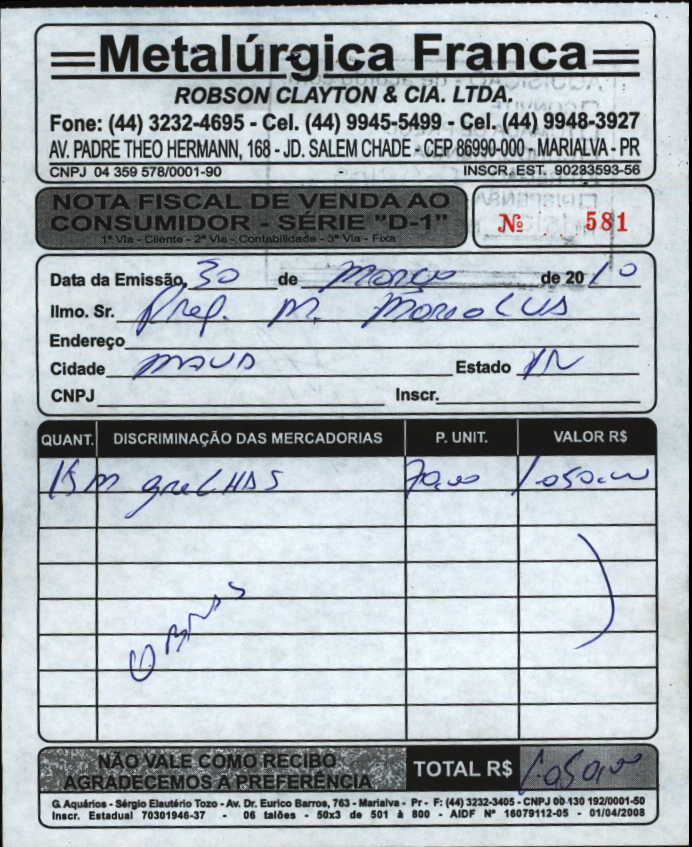 Metalúrgica Franca
ROBSON CLAYTON & CIA. LTDA.
Fone: (44) 3232-4695 - Cel. (44) 9945-5499 - Cel. (44) 9948-3927
AV. PADRE THEO HERMANN, 168 - JD. SALEM CHADE - CEP 86990-000 - MARIALVA - PR
CNPJ 04 359 578/0001-90 INSCR. EST. 90283593-56
NOTA FISCAL DE VENDA AO
CONSUMIDOR - SÉRIE "D-1"
1ª Via - Cliente - 2ª Via - Contabilidade - 3ª Via - Fixa
Nº 581
Data da Emissão, 30 de Março de 2010
Ilmo. Sr. Pref. M.
Endereço
Cidade Estado
CNPJ Inscr.
QUANT. DISCRIMINAÇÃO DAS MERCADORIAS P. UNIT. VALOR R$
15 M grelhas 70,00 1.050,00
OBRAS
NÃO VALE COMO RECIBO
AGRADECEMOS A PREFERÊNCIA
TOTAL R$ 1.050,00
G. Aquários - Sérgio Elautério Tozo - Av. Dr. Eurico Barros, 763 - Marialva - Pr - F: (44) 3232-3405 - CNPJ 00 130 192/0001-50
Inscr. Estadual 70301946-37 - 06 talões - 50x3 de 501 à 800 - AIDF Nº 16079112-05 - 01/04/2008